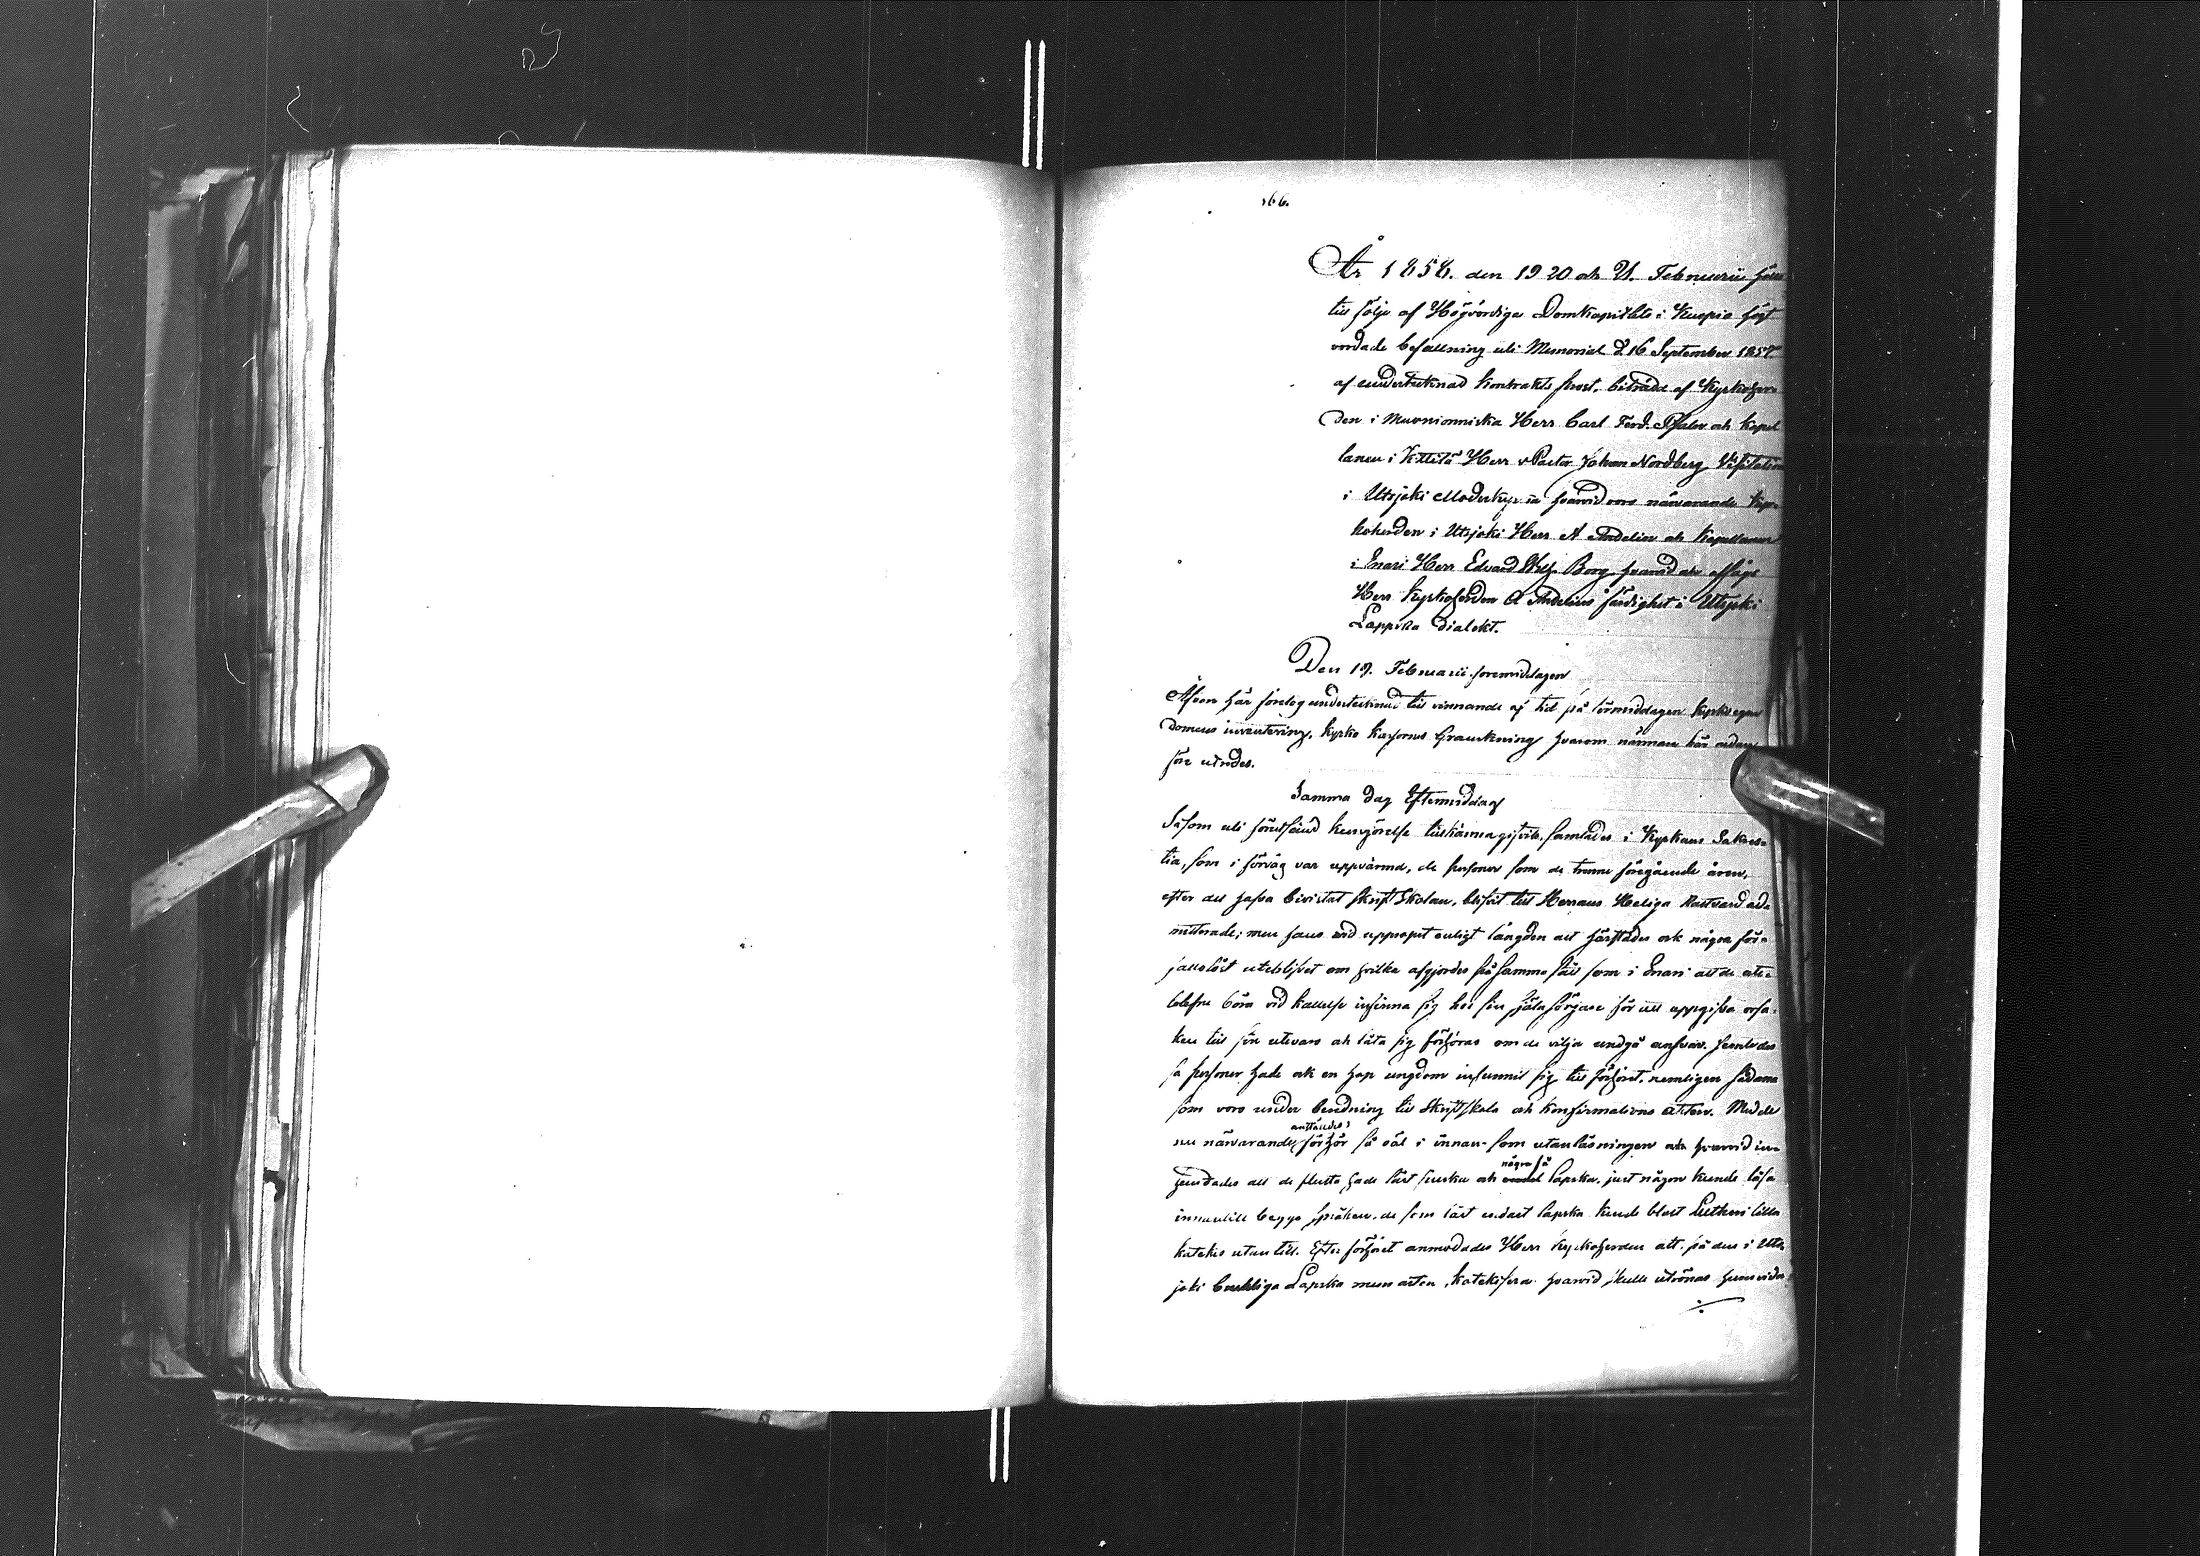 166.
År 1858. den 19 20 och 21. Februarii hölls
till följe af Högvördiga Domkapitlets i Kuopio högt
vordade befallning uti Memorial d 16 September 1857
af undertecknad Kontrakts prost, biträdd af Kyrkoher-
den i Muonionniska Herr Carl Ferd. Pfaler och Kapel
lanen i Kittilä Herr v Pastor Johan Nordberg, Visitation
i Utsjoki Moderkyrka hvarvid voro närvarande Kyr-
koherden i Utsjoki Herr A Andelin och Kapellanen
i Enari Herr Edvard Borg hvarvid ock
Herr Kyrkoherden A Andelins färdighet i Utsjoki
Lappska dialekt.
Den 19. Februarii förmiddagen
Äfven här företog undertecknad till vinnande af tid på förmiddagen Kyrko egen
domens inventering, Kyrko kassornes Granskning hvarom närmare här nedan
före
Samma dag Eftermiddag
Såsom uti förutsänd kungörelse tillkänna gifvits, samlades i Kyrkans Sakris-
tia, som i förväg var uppvärmd, de personer som de trenne föregående åren,
efter att hafva bivistat Skrift Skolan, blifvit till Herrans Heliga Nattvard ad-
mitterade; men fanns vid uppropet enligt längden att härstädes ock några för-
fallolöst uteblifvit om hvilka afgjordes på samma sätt som i Enari att de ute-
blefne böra vid kallelse infinna sig hos sin själasörjare för att uppgifva orsa-
ken till sin utevaro och låta sig förhöras om de vilja undgå ansvar. Jemte des
sa personer hade ock en hop ungdom infunnit sig till förhöret, nemligen sådana
som voro under beredning till Skriftskola och Konfirmations akten. Med de
nu närvarande anställdes förhör så väl i innan- som utanläsningen och hvarvid inn-
hemtades att de flesta hade läst finska och några få lapska, just någon kunde läsa
innantill begge språken, de som läst endast lapska kunde blott Lutheri lilla
kateches utantill. Efter förhöret anmodades Herr Kyrkoherden att på den i Uts-
joki brukliga Lapska munarten, katekisera hvarvid skulle utrönas huruvida